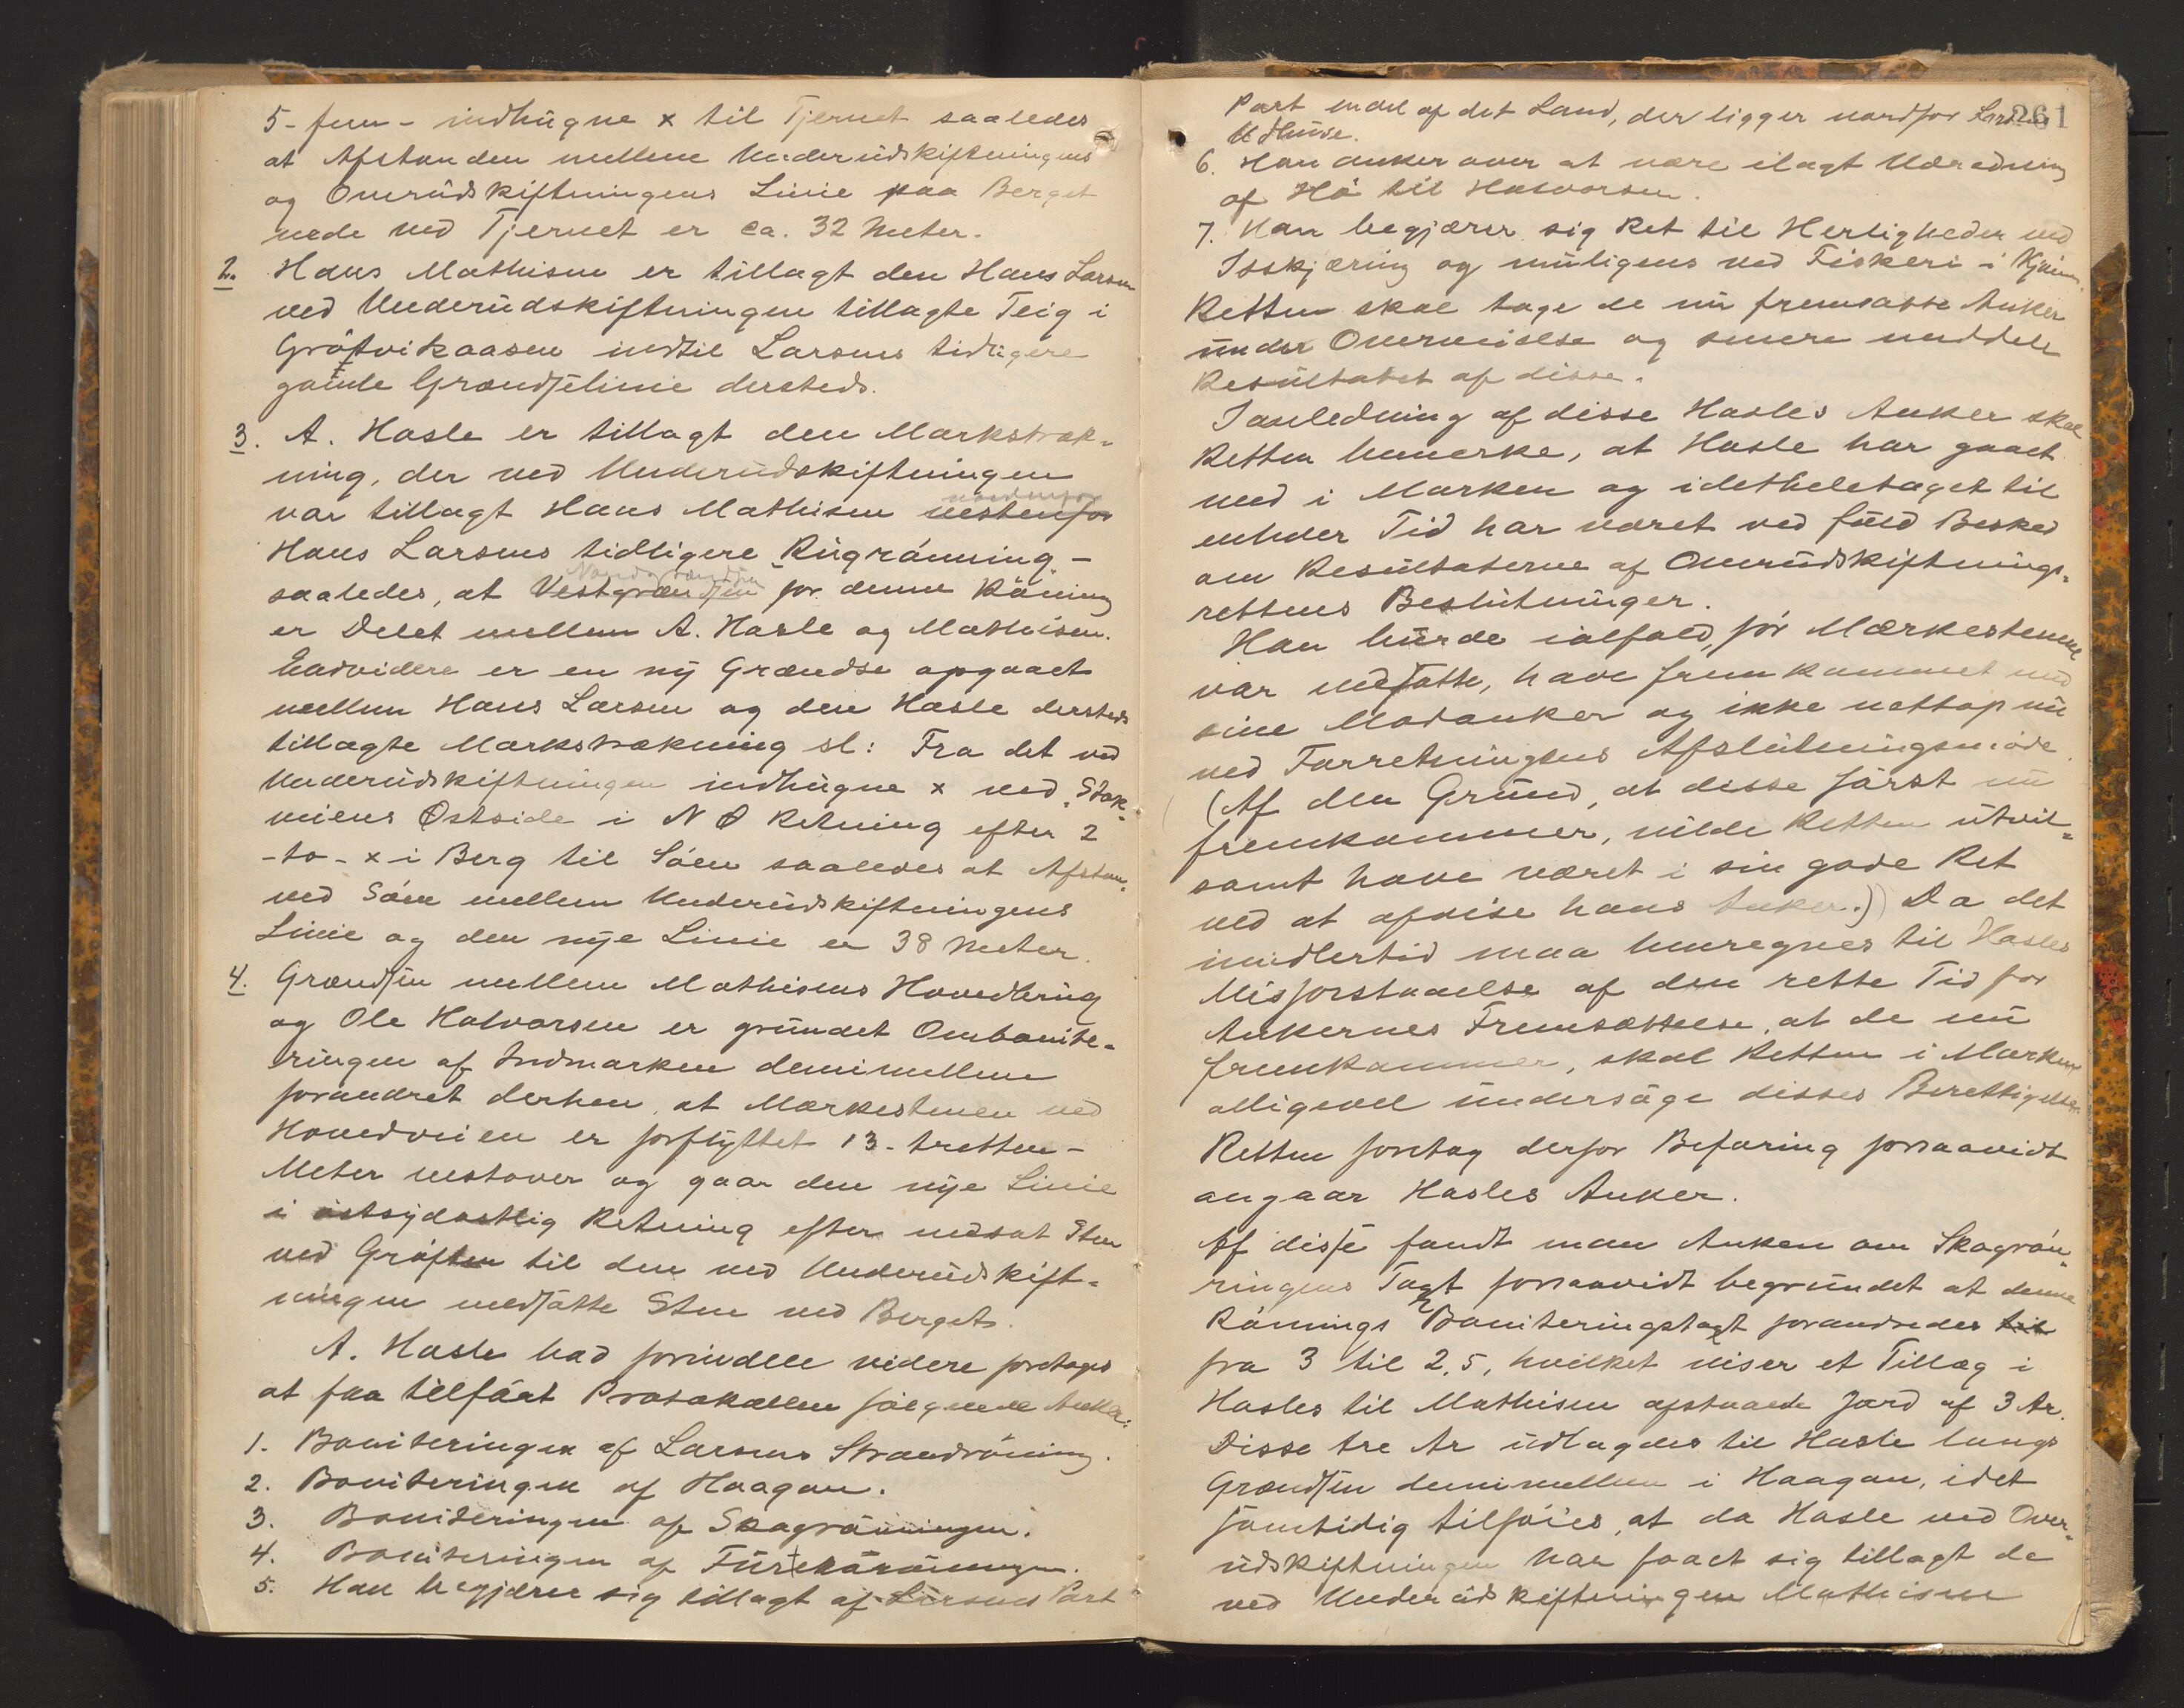 5 - fem - indhugne x til Tjernet saaledes
at Afstanden mellem Underudskiftningens
og Omrudskiftningens Linie paa Berget
nede ved Tjernet er ca. 32 Meter.
2. Hans Mathisen er tillagt den Hans Larsen
ved Underudskiftningen tillagte Teig i
Gröftvikaasen indtil Larsens tidligere
gamle Grændselinie dersteds.
3. A. Hasle er tillagt den Markstræk-
ning, der ved Underudskiftningen
nordenfor
var tillagt Hans Mathisen vestenfor
Hans Larsens tidligere Rugrönning -
Nordgrændsen
saaledes, at Vestgrændsen for denne Röning
er Delet mellem A. Hasle og Mathisen.
Endvidere er en ny Grændse opgaaet
mellem Hans Larsen og den Hasle dersteds
tillagte Markstrækning sl: Fra det ved
Underudskiftningen indhugne x ved "Stok-
veiens Østside i N Ø Retning efter 2
- to - x i Berg til Söen saaledes at Afstan-
ved Söen mellem Underudskiftningens
Linie og den nye Linie er 38 Meter.
4. Grændsen mellem Mathisens Hovedbrug
og Ole Halvorsen er grundet Ombonite-
ringen af Indmarken demimellem
forandret derhen, at Mærkestenen ved
Hovedveien er forflyttet 13 - tretten -
Meter vestover og gaar den nye Linie
i östsydostlig Retning efter nedsat Sten
ved Gröften til den ved Underudskift-
ningen nedsatte Sten ved Berget.
A. Hasle bad forinden videre foretages
at faa tilfört Protokollen fölgende Anker:
1. Boniteringen af Larsens Strandröning.
2. Boniteringen af Haagan.
3. Boniteringen af Skogrönningen.
4. Boniteringen af
5. Han begjærer sig tillagt af Larsens Part
261
Part endel af det Land, der ligger nordfor Larsens
Udhuse.
6. Han anker over at være ilagt Udredning
af Hö til Halvorsen.
7. Han begjærer sig Ret til Herligheder ved
Isskjæring og muligens ved Fiskeri i
Retten skal tage de nu fremsatte Anker
under Overveielse og senere meddele
Resultatet af disse.
I anledning af disse Hasles Anker skal
Retten bemerke, at Hasle har gaaet
med i Marken og idetheletaget til
enhver Tid har været ved fuld Besked
om Resultaterne af Omrudskiftnings-
rettens Beslutninger.
Han burde ialfald, för Mærkestenene
var nedsatte, have fremkommet med
sine Modanker og ikke nettop nu
ved Forretningens Afslutningsmöde
(Af den Grund, at disse först nu
fremkommer, vilde Retten utvil-
somt have været i sin gode Ret
ved at afvise hans Anker.) Da det
imidlertid maa henregnes til Hasles
Misforstaaelse af den rette Tid for
Ankernes Fremsættelse, at de nu
fremkommer, skal Retten i Marken
alligevel undersöge disses Berettigelse.
Retten foretog derfor Befaring forsaavidt
angaar Hasles Anker.
Af disse fandt man Anken om Skogrön-
ringens Taxt forsaavidt begrundet at denne
Rönnings Boniteringstaxt forandredes til
fra 3 til 2,5, hvilket viser et Tillæg i
Hasles til Mathisen afstaaede Jord af 3 Ar.
Disse tre Ar udlagdes til Hasle langs
Grændsen demimellem i Haagan, idet
samtidig tilföies, at da Hasle ved Over-
udskiftningen har faaet sig tillagt de
ved Underudskiftningen Mathisen